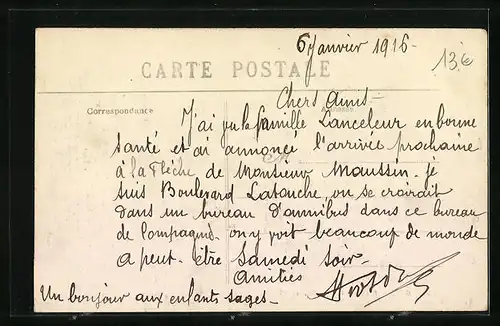 6 Janvier 1916-
13€
CARTE POSTALE
Correspondance
Chers Amis-
J'ai vu la famille Lanceleur en bonne
santé et ai annoncé l'arrivée prochaine
à la Flèche de Monsieur Maussin. je
suis Boulevard Latouche, on se croirait
dans un bureau d'omnibus dans ce bureau
de Compagnie. on y voit beaucoup de monde
à peut-être Samedi soir-
Amitiés
Un bonjour aux enfants sages-